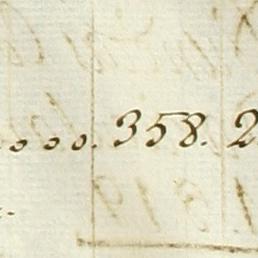 . o o o. 358. 2